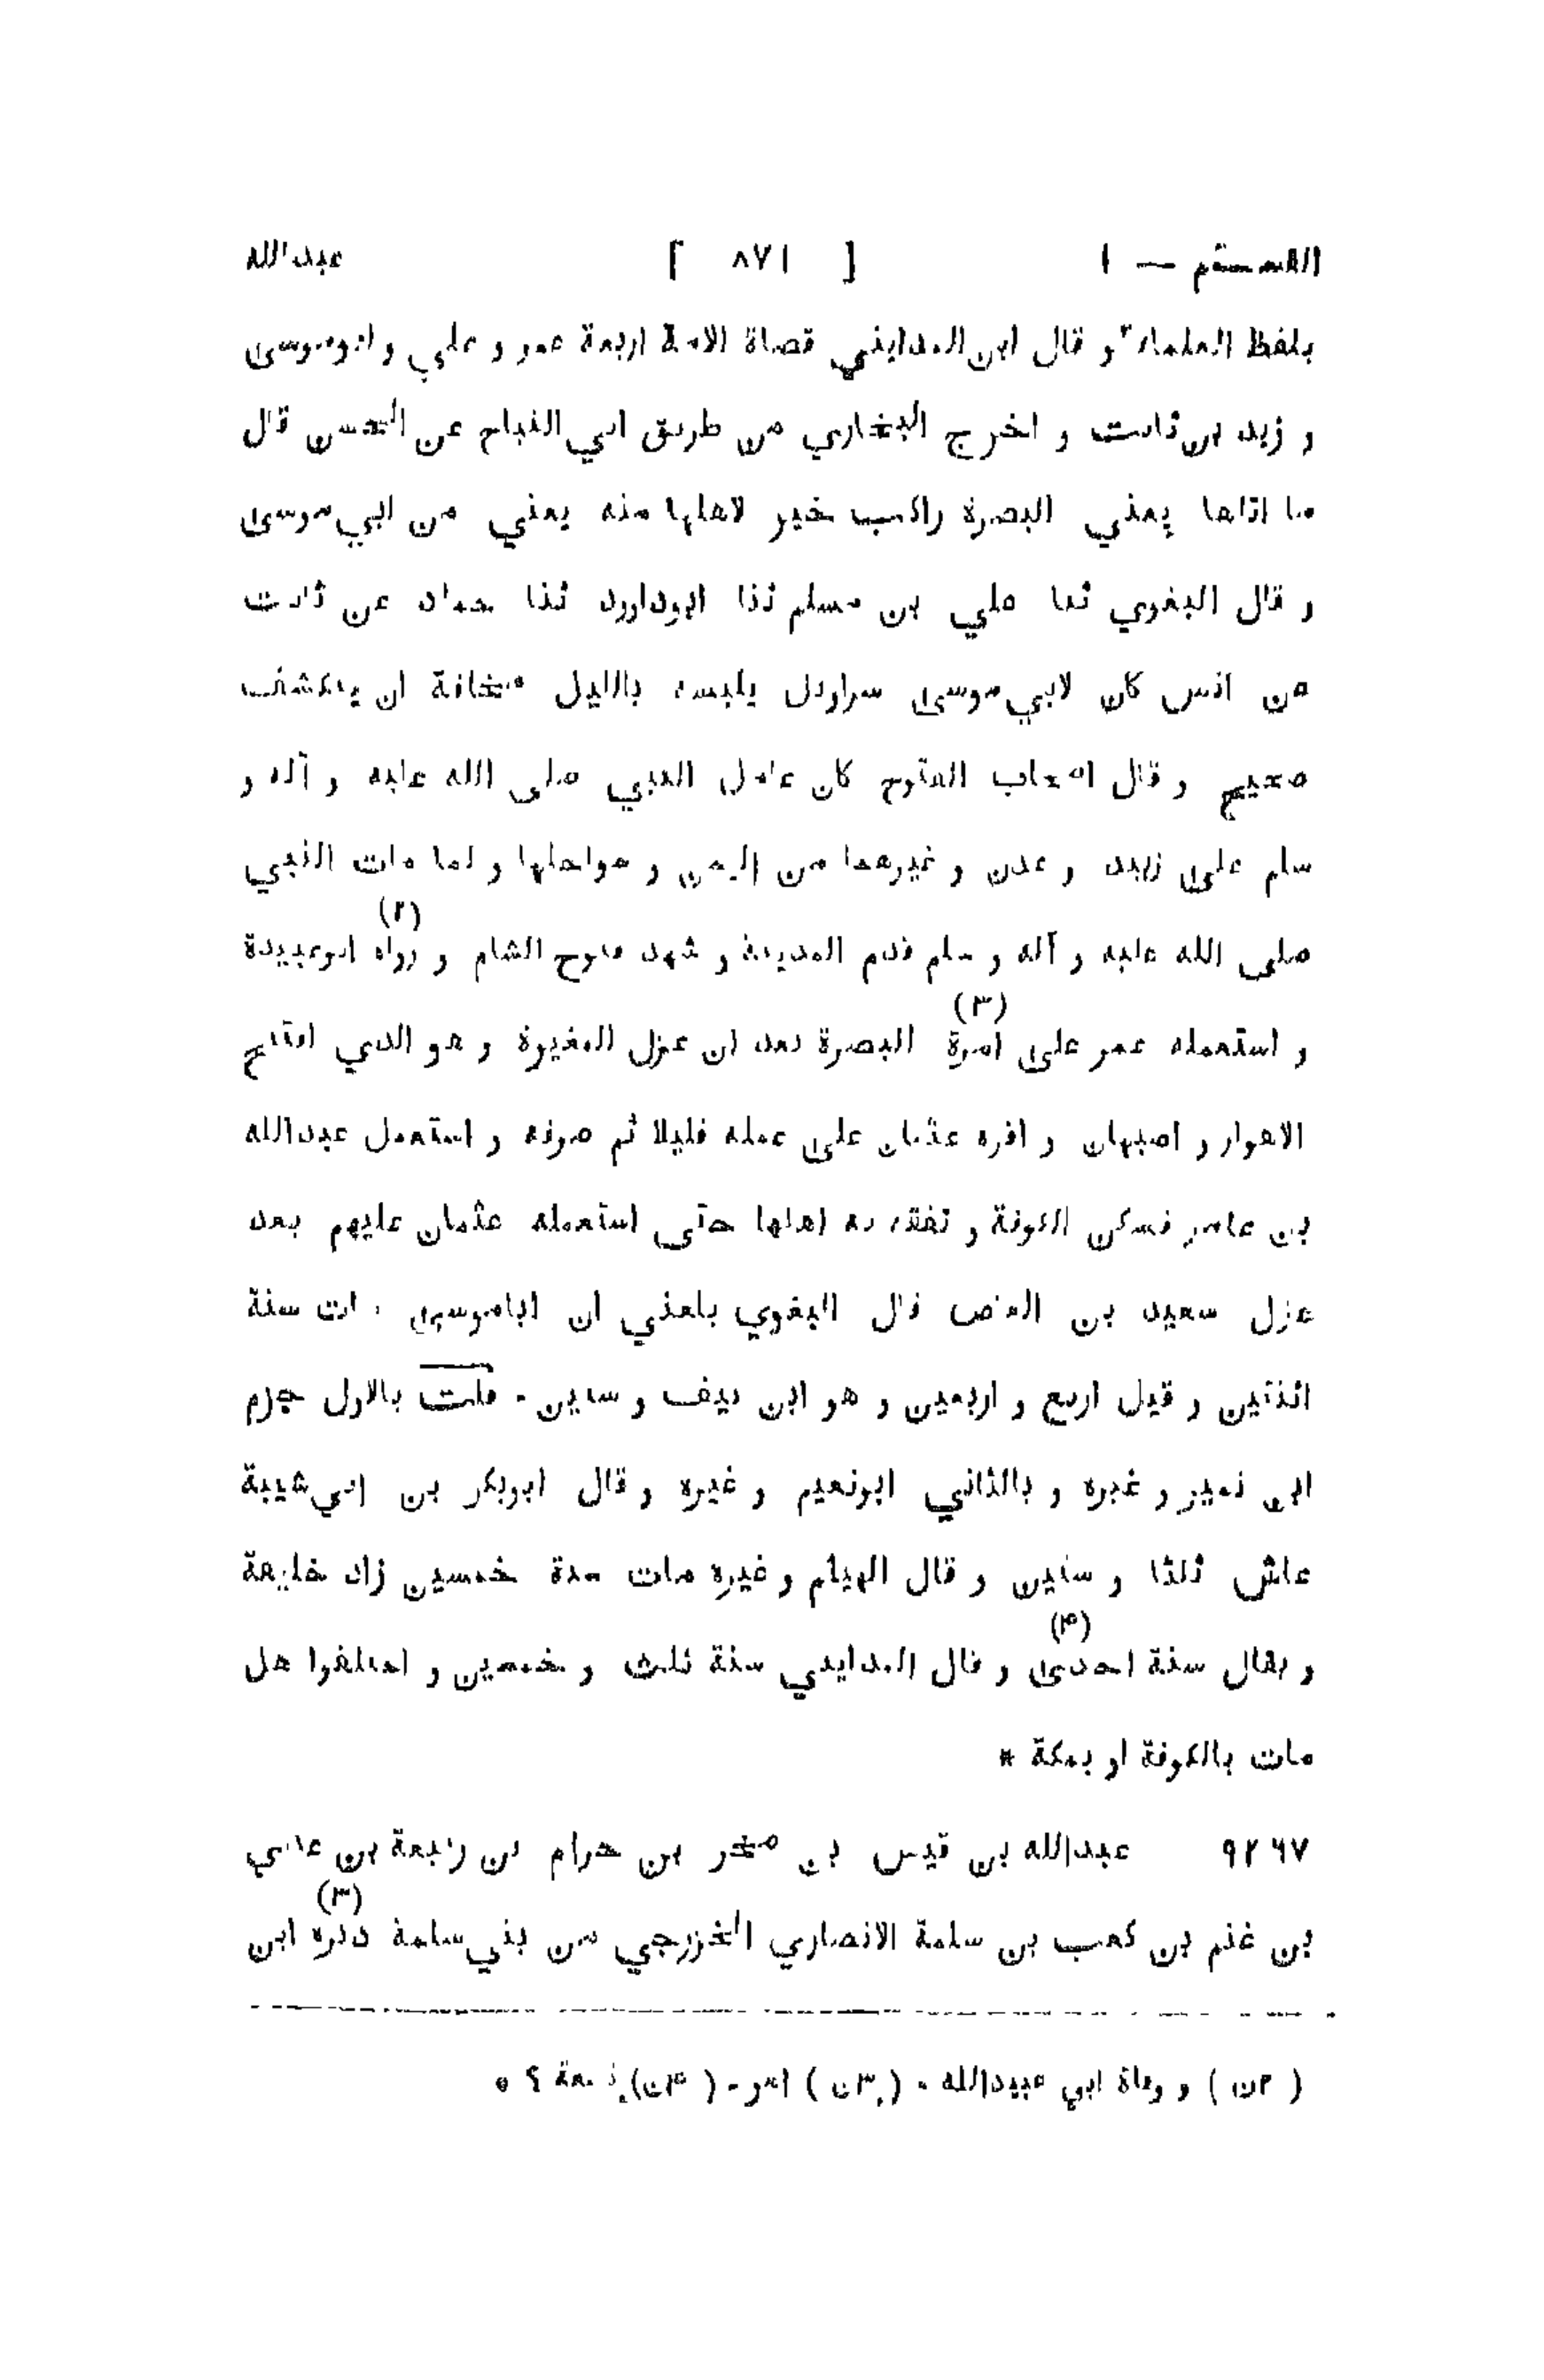 القسم — ١ [ ٨٧١ ] عبدالله
بلفظ العلماء و قال ابن المدايني قضاة الامة اربعة عمر و علي و ابوموسى
و زيد بن ثابت و اخرج البخاري من طريق ابي التياح عن الحسن قال
ما اتاها يعني البصرة راكب خير لاهلها منه يعني من ابي موسى
و قال البغوي ثنا علي بن مسلم ثنا ابوداوود ثنا حماد عن ثابت
عن انس كان لابي موسى سراويل يلبسه بالليل مخافة ان ينكشف
صحيح و قال اصحاب الفتوح كان عامل النبي صلى الله عليه و آله و
سلم على زبيد و عدن و غيرهما من اليمن و سواحلها و لما مات النبي
صلى الله عليه و آله و سلم قدم المدينة و شهد فتوح الشام و (٢) رواه ابوعبيدة
و استعمله عمر على (٣) امرة البصرة بعد ان عزل المغيرة و هو الذي افتتح
الاهواز و اصبهان و اقره عثمان على عمله قليلا ثم صرفه و استعمل عبدالله
بن عامر فسكن الكوفة و تفقه به اهلها حتى استعمله عثمان عليهم بعد
عزل سعيد بن العاص قال البغوي بلغني ان اباموسى مات سنة
اثنتين و قيل اربع و اربعين و هو ابن نيف و ستين - قلت بالاول جزم
ابن نمير و غيره و بالثاني ابونعيم و غيره و قال ابوبكر بن ابي شيبة
عاش ثلثا و ستين و قال الهيثم و غيره مات سنة خمسين زاد خليفة
و يقال سنة (٤) احدى و قال المدايني سنة ثلث و خمسين و اختلفوا هل
مات بالكوفة او بمكة *
٩٢٦٧ عبدالله بن قيس بن صخر بن حرام بن ربيعة بن عدي
بن غنم بن كعب بن سلمة الانصاري الخزرجي من بني سلمة (٣) ذكره ابن
( ٢ن ) و وفاة ابي عبيدالله - ( ٣ن ) امر - ( ٤ن ) ؟ *